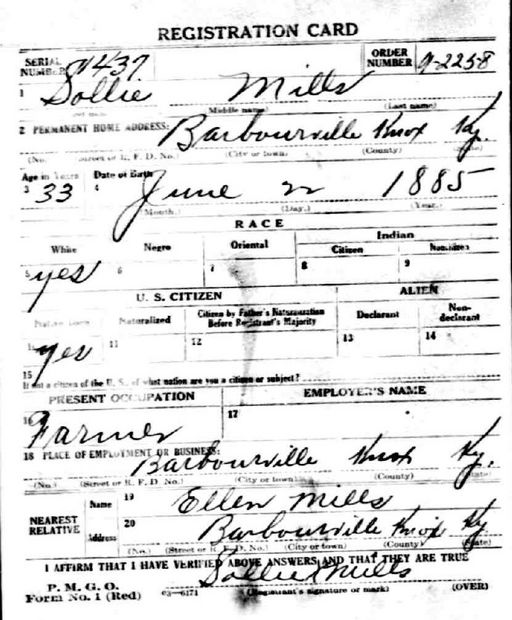 REGISTRATION CARD
SERIAL NUMBER 437 ORDER NUMBER A-2258
1 Sollie Mills
Middle name) (Last name)
2 PERMANENT HOME ADDRESS: Barbourville Knox Ky.
(No. Street or R. F. D. No.) (City or town) (County) (State)
Age in Years Date of Birth
3 33 4 June 22 1885
(Month.) (Day.) (Year.)
RACE
White Negro Oriental Indian
Citizen Noncitizen
5 yes 6 7 8 9
U. S. CITIZEN ALIEN
Native Born Naturalized Citizen by Father's Naturalization Before Registrant's Majority Declarant Non-declarant
10 yes 11 12 13 14
15
If not a citizen of the U. S., of what nation are you a citizen or subject?
PRESENT OCCUPATION EMPLOYER'S NAME
16 Farmer 17
18 PLACE OF EMPLOYMENT OR BUSINESS: Barbourville Knox Ky.
(No.) (Street or R. F. D. No.) (City or town) (County) (State)
NEAREST RELATIVE
Name 19 Ellen Mills
Address 20 Barbourville Knox Ky
(No.) (Street or R. F. D. No.) (City or town) (County) (State)
I AFFIRM THAT I HAVE VERIFIED ABOVE ANSWERS AND THAT THEY ARE TRUE
Sollie Mills
P. M. G. O.
Form No. 1 (Red) 03—6171 (Registrant's signature or mark) (OVER)